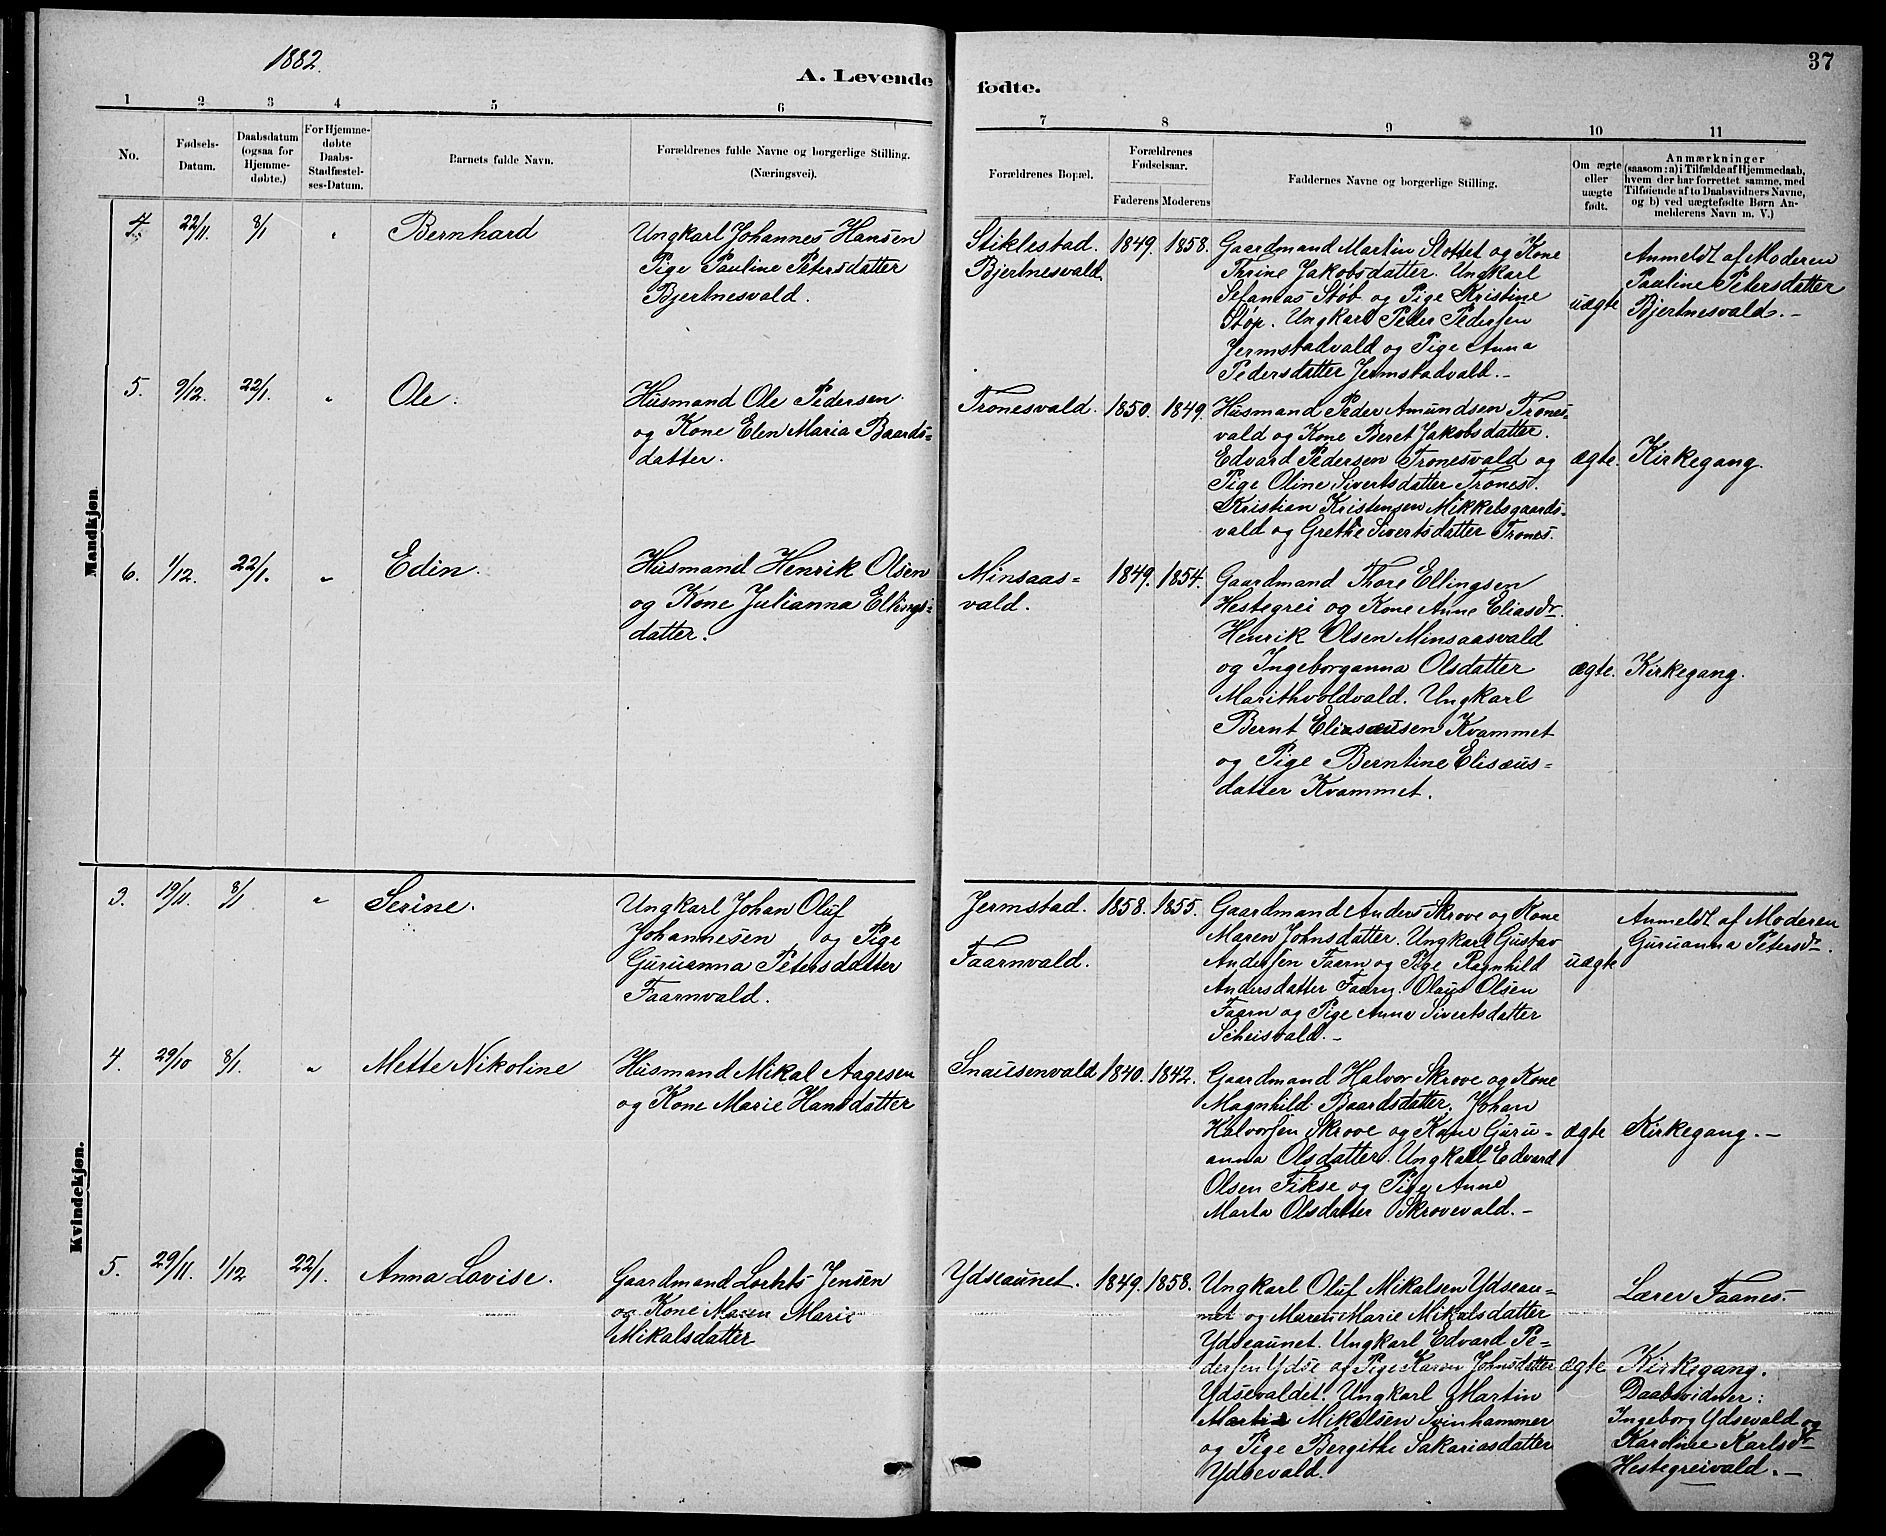 1882.
A. Levende
1 2 3 4 5 6
No.
Fødsels-
Datum.
Daabsdatum
(ogsaa for
Hjemme-
døbte.)
For Hjemme-
døbte
Daabs-
Stadfæstel-
ses-Datum.
Barnets fulde Navn.
Forældrenes fulde Navne og borgerlige Stilling.
(Næringsvei).
Mandkjøn
4. 22/11. 8/1 " Bernhard
Ungkarl Johannes Hansen
Pige Pauline Petersdatter
Bjertnesvald.
5. 9/12. 22/1. " Ole.
Husmand Ole Pedersen
og Kone Elen Maria Baards-
datter.
6. 1/12. 22/1. " Edin.
Husmand Henrik Olsen
og Kone Julianna Ellings-
datter.
Kvindekjøn.
3. 19/11. 8/1. " Serine.
Ungkarl Johan Oluf
Johannesen og Pige
Guruanna Petersdatter
Faarnvald.
4. 29/10 8/1. " Mette Nikoline
Husmand Mikal Aagesen
og Kone Marie Hansdatter
5. 29/11. 1/12 22/1. Anna Lovise.
Gaardmand Jensen
og Kone Maren Marie
Mikalsdatter
37
fødte.
7 8 9 10 11
Forældrenes Bopæl.
Forældrenes
Fødselsaar.
Faderens Moderens
Faddernes Navne og borgerlige Stilling.
Om ægte
eller
uægte
født.
Anmærkninger
(saasom: a) i Tilfælde af Hjemmedaab,
hvem der har forrettet samme, med
Tilføiende af to Daabsvidners Navne,
og b) ved uægtefødte Børn An-
melderens Navn m. V.)
Stiklestad.
Bjertnesvald.
1849. 1858.
Gaardmand Martin Slottet og Kone
Thrine Jakobsdatter. Ungkarl
Sefanias Støb og Pige Kristine
Støp. Ungkarl Peder Pedersen
Jermstadvald og Pige Anna
Pedersdatter Jermstadvald.-
uægte
Anmeldt af Moderen
Pauline Petersdatter
Bjertnesvald.-
Tronesvald. 1850. 1849.
Husmand Peder Amundsen Trones-
vald og Kone Beret Jakobsdatter.
Edvard Pedersen Tronesvald og
Pige Oline Sivertsdatter Trones.
Kristian Kristensen Mikkelsgaards-
vald og Grethe Sivertsdatter Trones.
ægte. Kirkegang.
Minsaas-
vald.
1849. 1854.
Gaardmand Thore Ellingsen
Hestegrei og Kone Anne Eliasdr.
Henrik Olsen Minsaasvald
og Ingeborganna Olsdatter
Marithvoldvald. Ungkarl
Bernt Elisæusen Kvammet
og Pige Berntine Elisæus-
datter Kvammet.
ægte. Kirkegang.
Jermstad.
Faarnvald.
1858. 1855.
Gaardmand Anders Skrove og Kone
Maren Johnsdatter. Ungkarl Gustav
Andersen Faarn og Pige Ragnhild
Andersdatter Faarn. Olaus Olsen
Faarn og Pige Anne Sivertsdatter
Scheisvald.-
uægte
Anmeldt af Moderen
Guruanna Petersdr.
Snausenvald 1840. 1842.
Gaardmand Halvor Skrove og Kone
Magnhild Baardsdatter. Johan
Halvorsen Skrove og Kone Guru-
anna Olsdatter. Ungkarl Edvard
Olsen Fikse og Pige Anne
Marta Olsdatter Skrovevald.-
ægte Kirkegang.-
Ydseaunet. 1849. 1858.
Ungkarl Oluf Mikalsen Ydseau-
net og Maren Marie Mikalsdatter
Ydseaunet. Ungkarl Edvard Pe-
dersen Ydse og Pige Karen Johnsdatter
Ydsevaldet. Ungkarl Martin
Mikalsen Svinhammer
og Pige Bergithe Sakariasdatter
Ydsevald.
ægte
Lærer Faanes.
Kirkegang.
Daabsvidner:
Ingeborg Ydsevald og
Karoline Karlsdr
Hestegreivald.-